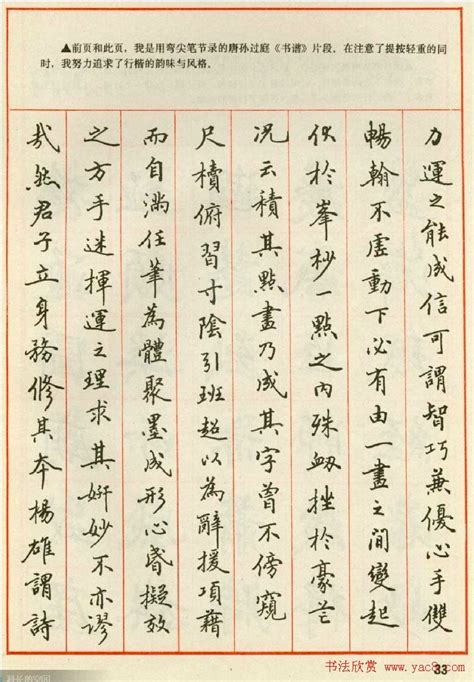 ▲前页和此页，我是用弯尖笔节录的唐孙过庭《书谱》片段。在注意了提按轻重的同
时，我努力追求了行楷的韵味与风格。
力運之能成信可謂智巧兼優心手雙
暢翰不虛動下必有由一畫之间變起
伏於峯杪一點之内殊衂挫於豪芒
况云積其點畫乃成其字曾不傍窺
尺犢俯習寸陰引班超以為辭援項藉
而自満任筆為體聚墨成形心昏擬效
之方手迷揮運之理求其妍妙不亦謬
哉然君子立身務修其本楊雄謂詩
33
书法欣赏 www.yac8.com